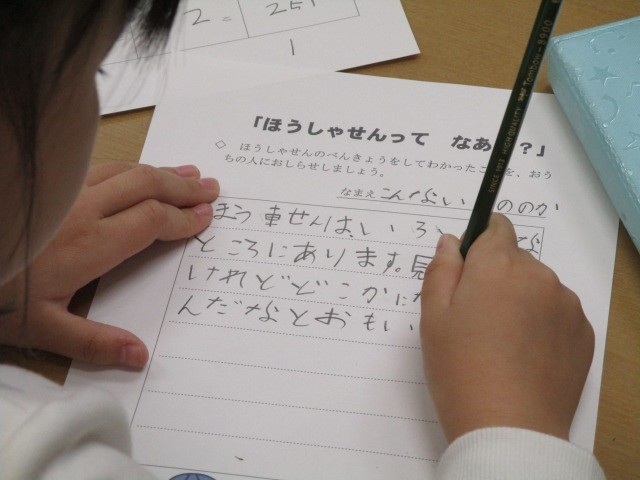 2 = 251
1
「ほうしゃせんって なあ ?」
◇ ほうしゃせんのべんきょうをしてわかったこ を、おう
ちの人におしらせしましょう。
なまえ こんない ののか
ほう車せんは、いろ な
ところにあります。見
けれどどこかに
んだなとおもい